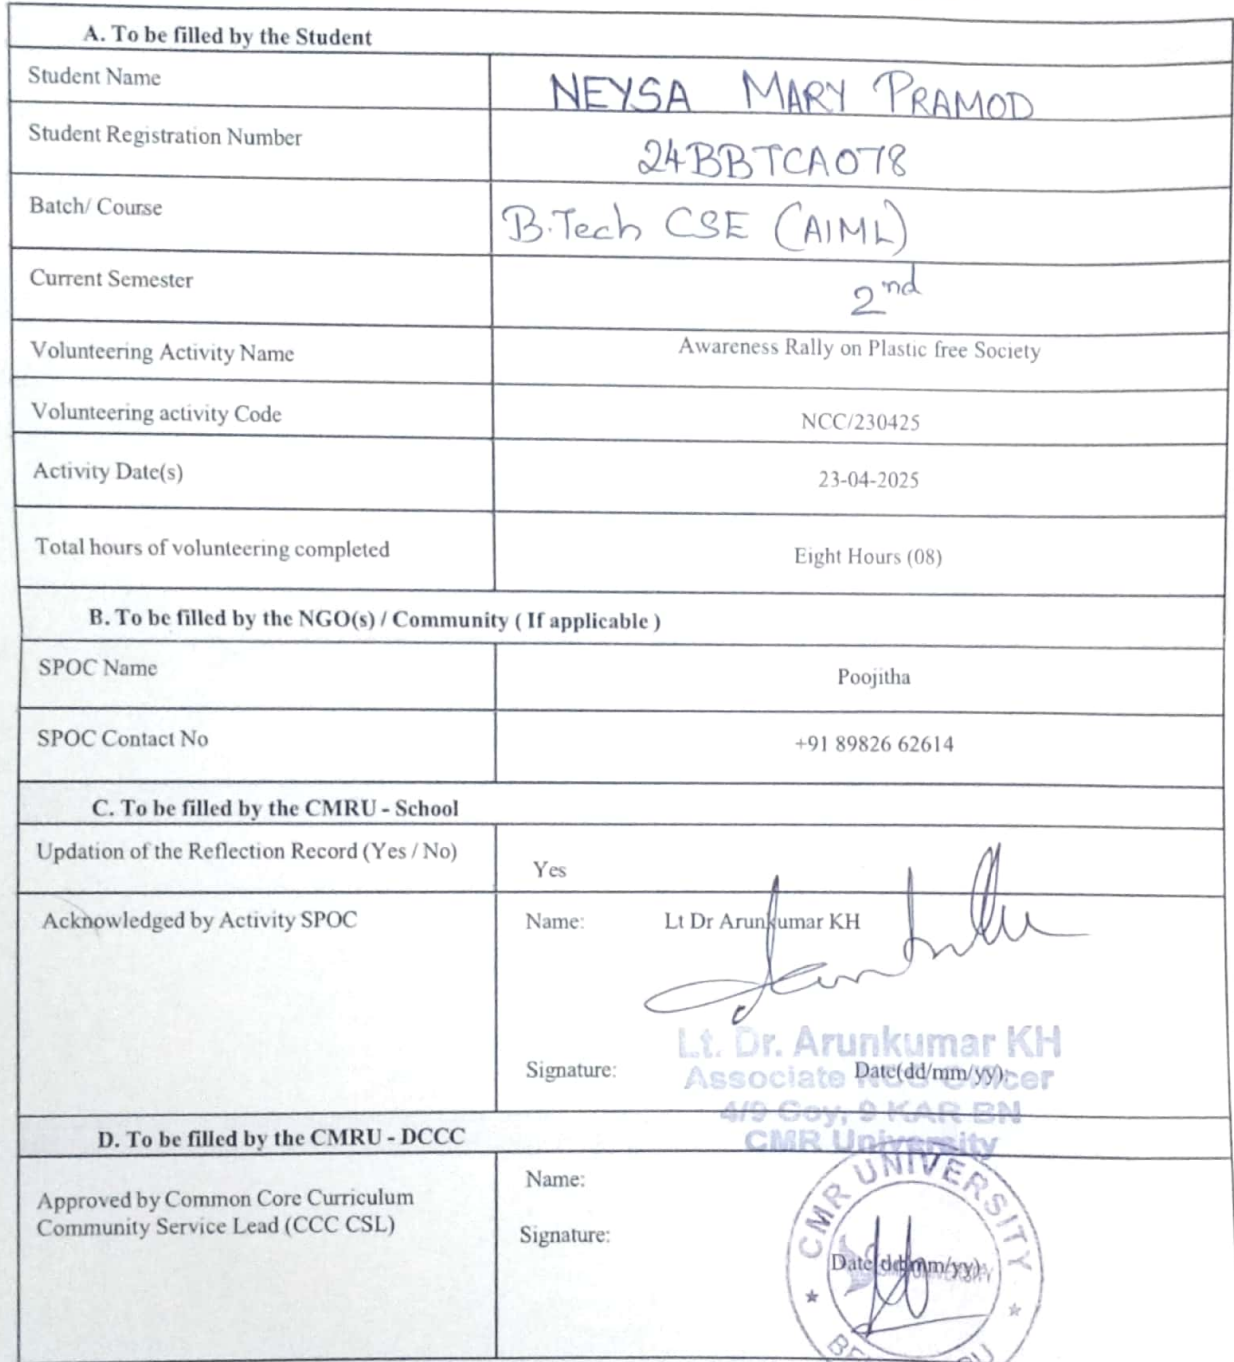 A. To be filled by the Student
Student Name NEYSA MARY PRAMOD
Student Registration Number 24BBTCA078
Batch/ Course B.Tech CSE (AIML)
Current Semester 2nd
Volunteering Activity Name Awareness Rally on Plastic free Society
Volunteering activity Code NCC/230425
Activity Date(s) 23-04-2025
Total hours of volunteering completed Eight Hours (08)
B. To be filled by the NGO(s) / Community ( If applicable )
SPOC Name Poojitha
SPOC Contact No +91 89826 62614
C. To be filled by the CMRU - School
Updation of the Reflection Record (Yes / No) Yes
Acknowledged by Activity SPOC Name: Lt Dr Arunkumar KH
Lt. Dr. Arunkumar KH
Signature: Date(dd/mm/yy):
Associate NCC Officer
4/9 Coy, 9 KAR BN
CMR University
D. To be filled by the CMRU - DCCC
Approved by Common Core Curriculum
Community Service Lead (CCC CSL)
Name:
Signature:
Date(dd/mm/yy):
CMR UNIVERSITY